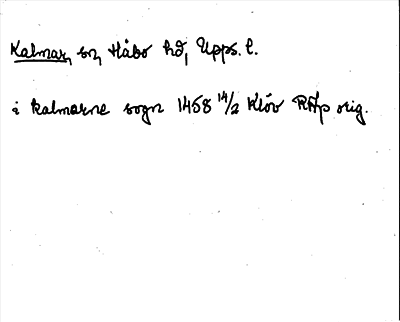 Kalmar, sn, Håbo hd, Upps. l.
i kalmarne sogn 1458 14/2 Klöv RAp orig.